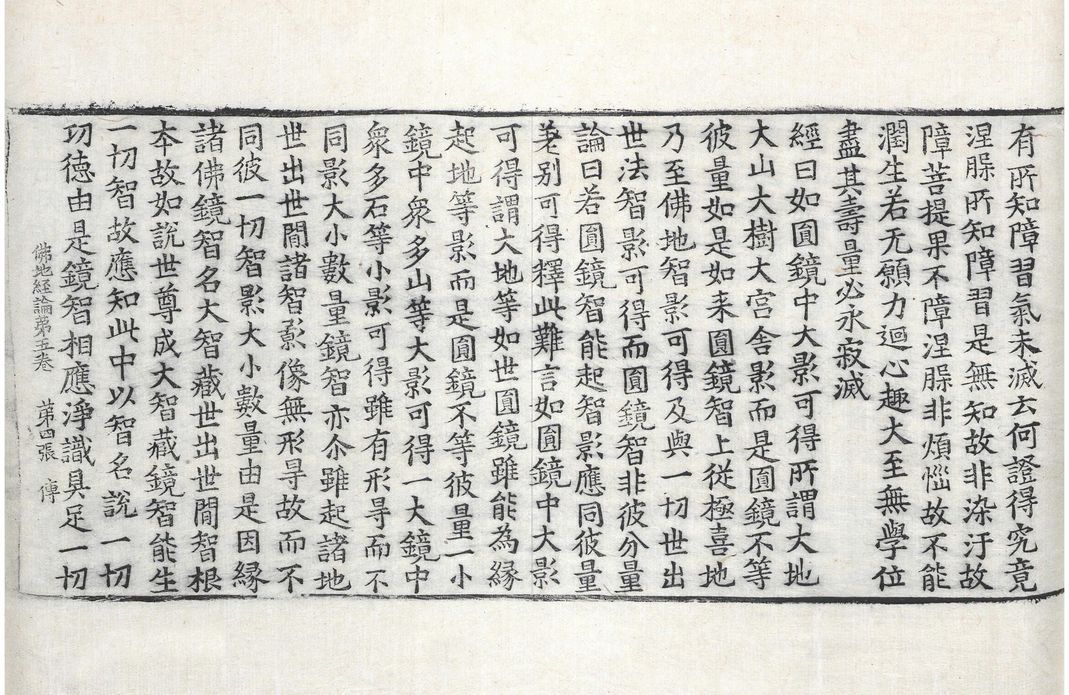 有所知障習氣未滅云何證得究竟
涅槃所知障習是無知故非染汙故
障菩提果不障涅槃非煩惱故不能
潤生若无願力迴心趣大至無學位
盡其壽量必永寂滅
經曰如圓鏡中大影可得所謂大地
大山大樹大宮舍影而是圓鏡不等
彼量如是如来圓鏡智上從極喜地
乃至佛地智影可得及與一切世出
世法智影可得而圓鏡智非彼分量
論曰若圓鏡智能起智影應同彼量
差别可得釋此難言如圓鏡中大影
可得謂大地等如世圓鏡雖能為緣
起地等影而是圓鏡不等彼量一小
鏡中衆多山等大影可得一大鏡中
衆多石等小影可得雖有形㝵而不
同影大小數量鏡智亦尒雖起諸地
世出世間諸智影像無形㝵故而不
同彼一切智影大小數量由是因緣
諸佛鏡智名大智藏世出世間智根
夲故如說世尊成大智藏鏡智能生
一切智故應知此中以智名說一切
功德由是鏡智相應淨識具足一切
佛地经論苐五卷 苐四張 傳